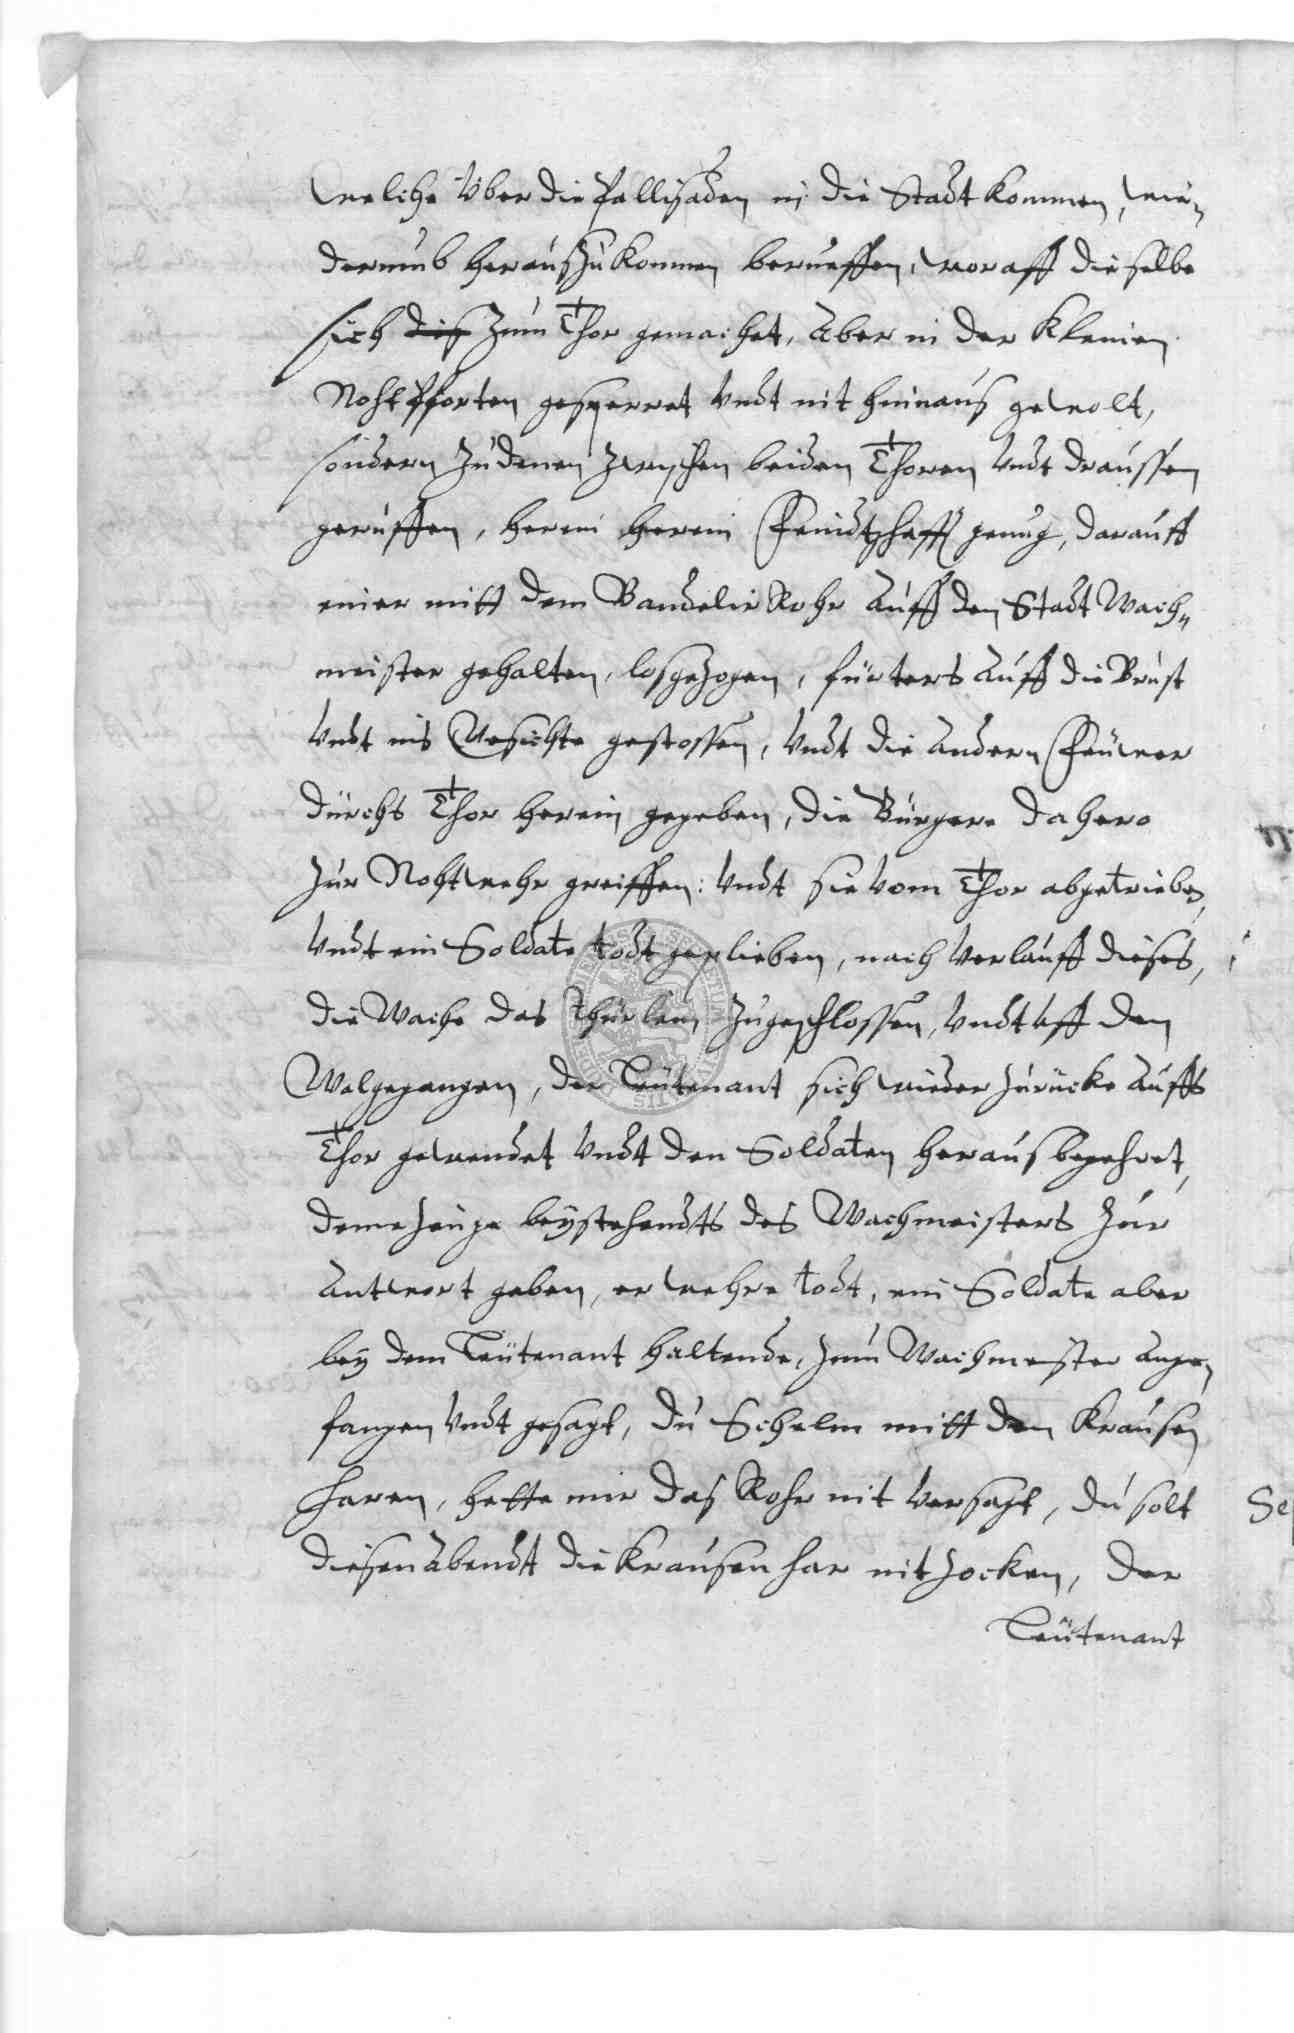 welche über die Pallisaden in die Stadt kommen, wie„
derumb herauszukommen beruaffen, woraff dieselbe
sich zum Thor gemachet, Aber in der kleinen
Nohtpforten gesperret Undt nit hinaus gewolt,
sondern zu denen zwischen beiden Thoren Undt draussen
geruffen, herein herein Feindtschafft genug, darauff
einer mitt dem Bandelir Rohr Auff den Stadt Wach„
meister gehalten, losgezogen, fürters Auff die Brust
Undt ins Gesichte gestossen, Undt die Andern Feüwer
durchs Thor herein gegeben, die Bürgere dahero
zur Nohtwehr greiffen: Undt sie vom Thor abgetrieben,
Undt ein Soldate todt geplieben, nach Verlauff dieses,
die Wache das Thürlein zugeschlossen, Undt uff den
Walgegangen, der Leütenant sich wieder zurücke Auffs
Thor gewendet Undt den Soldaten heraus begehret,
deme Zeuge beystehendts des Wachmeisters zur
Antwort geben, er wehre todt, ein Soldate aber
bey dem Leütenant haltende, zum Wachmeister ange„
fangen Undt gesagt, du Schelm mitt den krausen
Haren, hette mir das Rohr nit Versagt, du solt
diesen Abendt die krausen har nit zocken, der
Leütenant